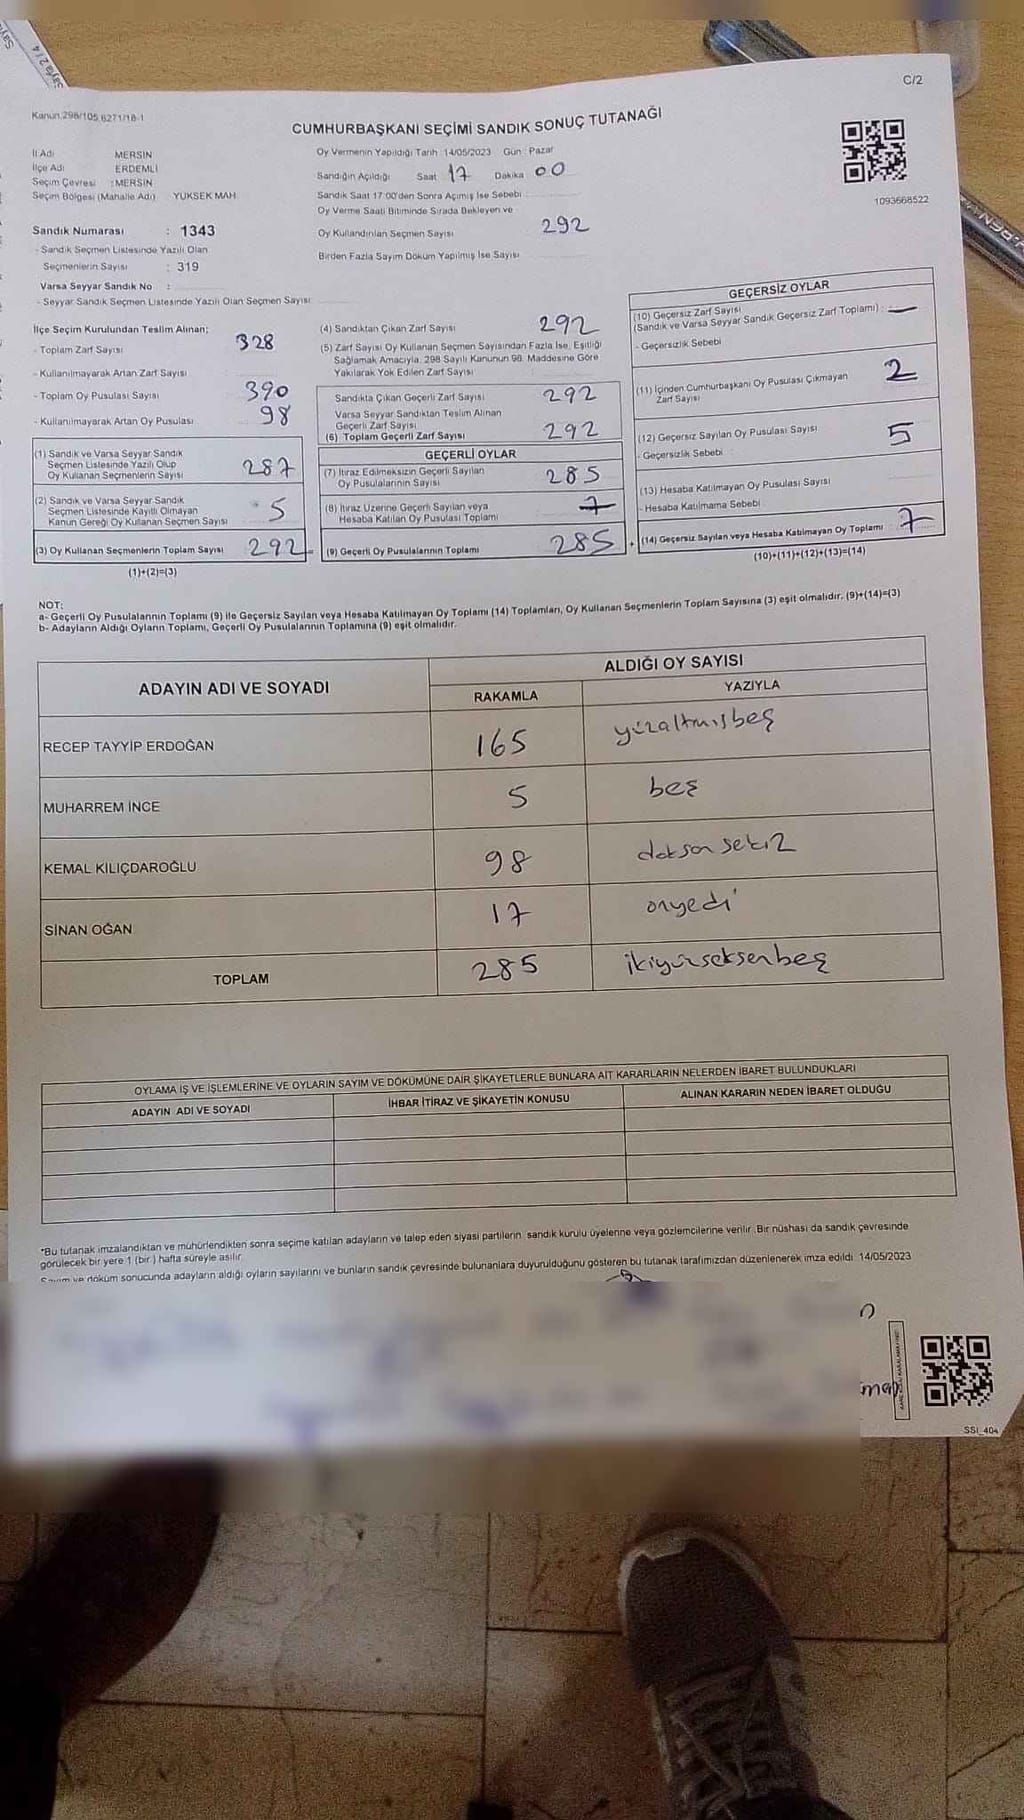 Sayfa 2 / 4
C/2
Kanun:298/105,6271/18-1
CUMHURBAŞKANI SEÇİMİ SANDIK SONUÇ TUTANAĞI
İl Adı MERSIN
İlçe Adı ERDEMLİ
Seçim Çevresi : MERSİN
Seçim Bölgesi (Mahalle Adı) YÜKSEK MAH.
Sandık Numarası : 1343
- Sandık Seçmen Listesinde Yazılı Olan
Seçmenlerin Sayısı : 319
Varsa Seyyar Sandık No :
- Seyyar Sandık Seçmen Listesinde Yazılı Olan Seçmen Sayısı:
Oy Vermenin Yapıldığı Tarih :14/05/2023 Gün : Pazar
Sandığın Açıldığı Saat 17 Dakika 00
Sandık Saat 17:00'den Sonra Açılmış İse Sebebi
Oy Verme Saati Bitiminde Sırada Bekleyen ve
Oy Kullandırılan Seçmen Sayısı 292
Birden Fazla Sayım Döküm Yapılmış İse Sayısı
1093668522
İlçe Seçim Kurulundan Teslim Alınan;
- Toplam Zarf Sayısı 328
- Kullanılmayarak Artan Zarf Sayısı
- Toplam Oy Pusulası Sayısı 390
- Kullanılmayarak Artan Oy Pusulası 98
(1) Sandık ve Varsa Seyyar Sandık
Seçmen Listesinde Yazılı Olup
Oy Kullanan Seçmenlerin Sayısı 287
(2) Sandık ve Varsa Seyyar Sandık
Seçmen Listesinde Kayıtlı Olmayan
Kanun Gereği Oy Kullanan Seçmen Sayısı 5
(3) Oy Kullanan Seçmenlerin Toplam Sayısı 292
(1)+(2)=(3)
(4) Sandıktan Çıkan Zarf Sayısı 292
(5) Zarf Sayısı Oy Kullanan Seçmen Sayısından Fazla İse, Eşitliği
Sağlamak Amacıyla, 298 Sayılı Kanunun 98. Maddesine Göre
Yakılarak Yok Edilen Zarf Sayısı
Sandıkta Çıkan Geçerli Zarf Sayısı 292
Varsa Seyyar Sandıktan Teslim Alınan
Geçerli Zarf Sayısı
(6) Toplam Geçerli Zarf Sayısı 292
GEÇERLİ OYLAR
(7) İtiraz Edilmeksizin Geçerli Sayılan
Oy Pusulalarının Sayısı 285
(8) İtiraz Üzerine Geçerli Sayılan veya
Hesaba Katılan Oy Pusulası Toplamı
(9) Geçerli Oy Pusulalarının Toplamı 285
GEÇERSİZ OYLAR
(10) Geçersiz Zarf Sayısı
(Sandık ve Varsa Seyyar Sandık Geçersiz Zarf Toplamı) : —
- Geçersizlik Sebebi
(11) İçinden Cumhurbaşkanı Oy Pusulası Çıkmayan
Zarf Sayısı 2
(12) Geçersiz Sayılan Oy Pusulası Sayısı 5
- Geçersizlik Sebebi :
(13) Hesaba Katılmayan Oy Pusulası Sayısı
- Hesaba Katılmama Sebebi
+ (14) Geçersiz Sayılan veya Hesaba Katılmayan Oy Toplamı 7
(10)+(11)+(12)+(13)=(14)
NOT:
a- Geçerli Oy Pusulalarının Toplamı (9) ile Geçersiz Sayılan veya Hesaba Katılmayan Oy Toplamı (14) Toplamları, Oy Kullanan Seçmenlerin Toplam Sayısına (3) eşit olmalıdır. (9)+(14)=(3)
b- Adayların Aldığı Oyların Toplamı, Geçerli Oy Pusulalarının Toplamına (9) eşit olmalıdır.
ADAYIN ADI VE SOYADI ALDIĞI OY SAYISI
RAKAMLA YAZIYLA
RECEP TAYYİP ERDOĞAN 165 yüzaltmışbeş
MUHARREM İNCE 5 beş
KEMAL KILIÇDAROĞLU 98 doksan sekiz
SİNAN OĞAN 17 onyedi
TOPLAM 285 ikiyüzseksenbeş
OYLAMA İŞ VE İŞLEMLERİNE VE OYLARIN SAYIM VE DÖKÜMÜNE DAİR ŞİKAYETLERLE BUNLARA AİT KARARLARIN NELERDEN İBARET BULUNDUKLARI
ADAYIN ADI VE SOYADI İHBAR İTİRAZ VE ŞİKAYETİN KONUSU ALINAN KARARIN NEDEN İBARET OLDUĞU
*Bu tutanak imzalandıktan ve mühürlendikten sonra seçime katılan adayların ve talep eden siyasi partilerin sandık kurulu üyelerine veya gözlemcilerine verilir. Bir nüshası da sandık çevresinde
görülecek bir yere 1 (bir ) hafta süreyle asılır.
Sayım ve döküm sonucunda adayların aldığı oyların sayılarını ve bunların sandık çevresinde bulunanlara duyurulduğunu gösteren bu tutanak tarafımızdan düzenlenerek imza edildi. 14/05/2023
SSI_404